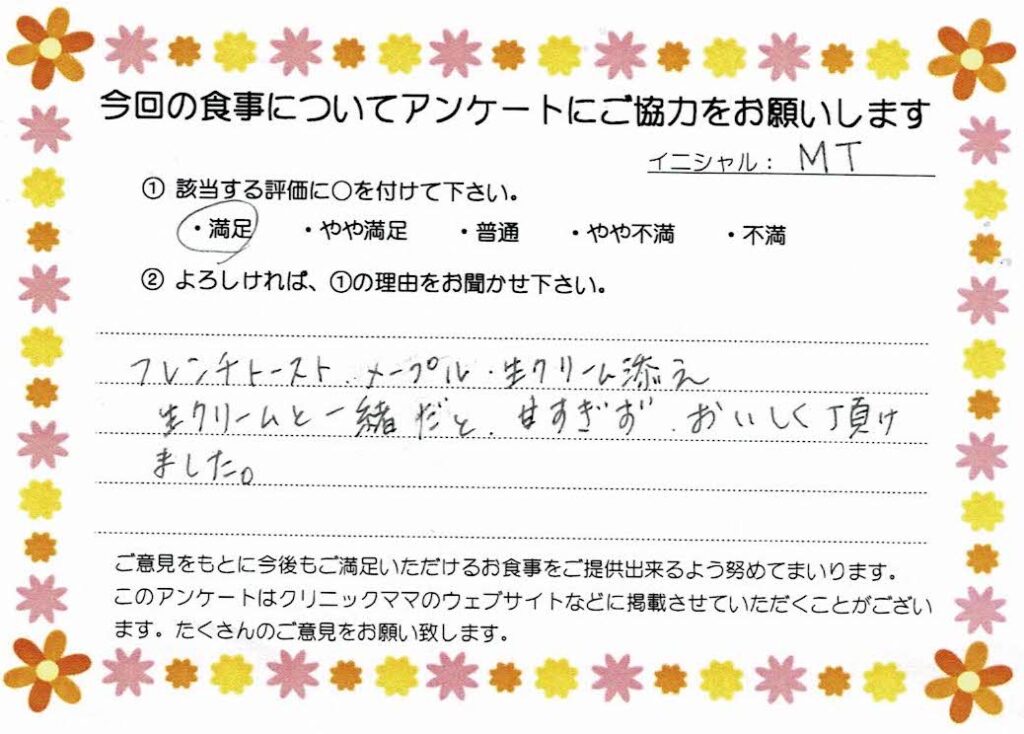 今回の食事についてアンケートにご協力をお願いします
イニシャル： MT
① 該当する評価に○を付けて下さい。
・満足 ・やや満足 ・普通 ・やや不満 ・不満
② よろしければ、①の理由をお聞かせ下さい。
フレンチトースト、メープル・生クリーム添え
生クリームと一緒だと、甘すぎず、おいしく頂け
ました。
ご意見をもとに今後もご満足いただけるお食事をご提供出来るよう努めてまいります。
このアンケートはクリニックママのウェブサイトなどに掲載させていただくことがござい
ます。たくさんのご意見をお願い致します。